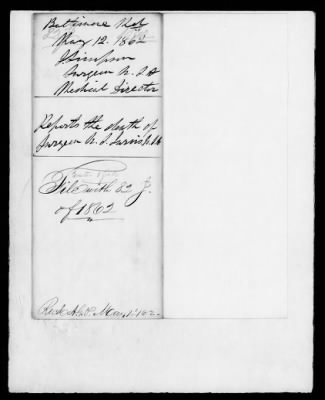 Baltimore Md
May 12. 1862
J. Simpson
Surgeon U.S.A
Medical Director
Reports the death of
Surgeon N. S. Jarvis U.S.A
File with 82 J.
of 1862
Recd A.G.O. May 1862.